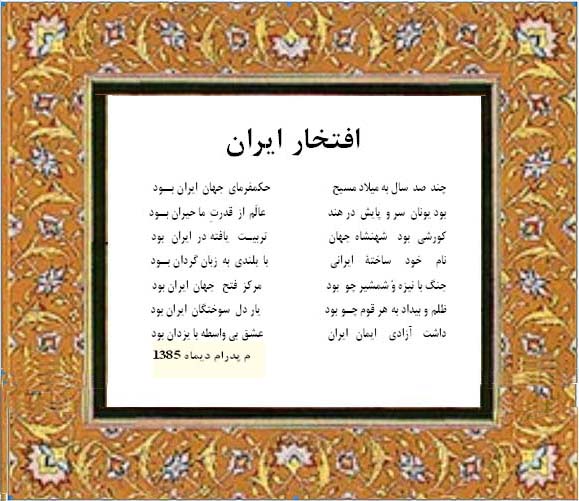 افتخار ایران
چند صد سال به میلاد مسیح حکمفرمای جهان ایران بود
بود یونان سر و پایش در هند عالَم از قدرتِ ما حیران بود
کورشی بود شهنشاه جهان تربیت یافته در ایران بود
نام خود ساختهٔ ایرانی با بلندی به زبان گردان بود
جنگ با نیزه و شمشیر چو بود مرکز فتح جهان ایران بود
ظلم و بیداد به هر قوم چو بود یار دل سوختگان ایران بود
داشت آزادی ایمان ایران عشق بی واسطه با یزدان بود
م پدرام دیماه 1385